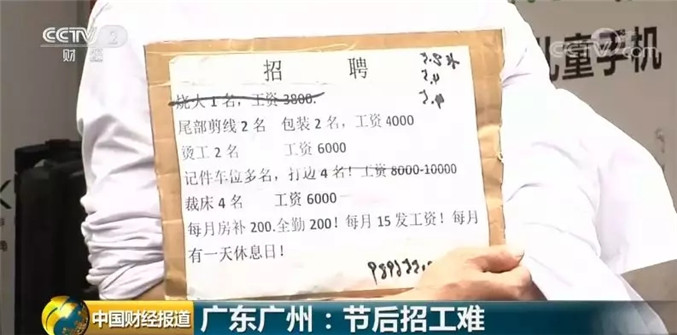 CCTV 2
财经
CCTV 2
儿童手机
招 聘
烧大1名，工资3800.
尾部剪线2名 包装2名，工资4000
烫工2名 工资6000
记件车位多名，打边4名！工资8000-10000
裁床4名 工资6000
每月房补200.全勤200！每月15发工资！每月
有一天休息日！
中国财经报道
广东广州：节后招工难